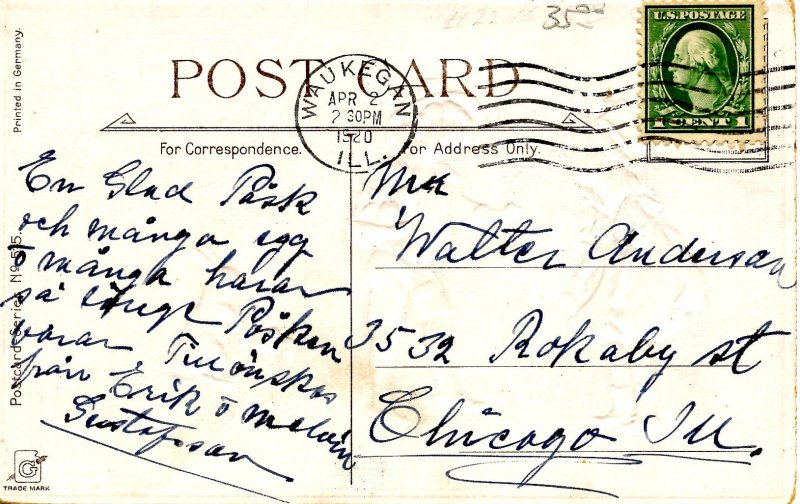 35
U.S. POSTAGE
1 CENT 1
POST CARD
WAUKEGAN
APR 2
2 30PM
1920
ILL.
For Correspondence.
For Address Only.
Printed in Germany.
Postcard Series No. 515.
En Glad Påsk
och många egg
o många harar
så länge Påsken
varar Tillönskas
från Erik o Malvin
Gustafson
Mr
Walter Anderson
3532 Rokaby st
Chicago Ill.
G
TRADE MARK